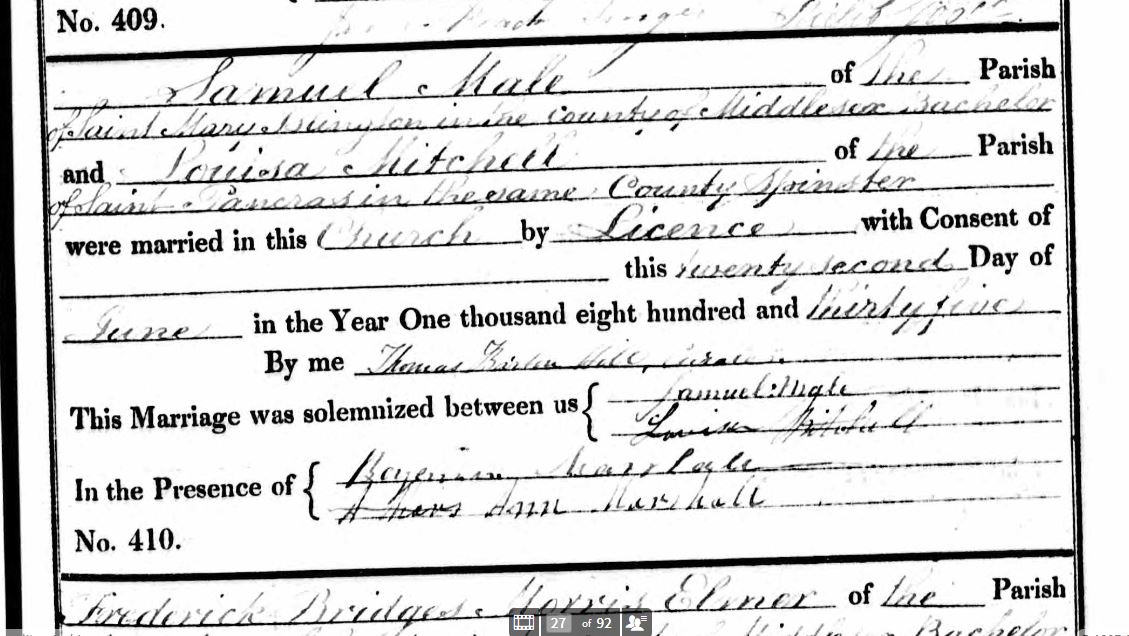 No. 409.
Samuel Male of the Parish
of Saint Mary Islington in the County of Middlesex Bachelor
and Louisa Mitchell of the Parish
of Saint Pancras in the same County Spinster
were married in this Church by Licence with Consent of
this twenty second Day of
June in the Year One thousand eight hundred and thirty five
By me Thomas Hill, Curate
This Marriage was solemnized between us { Samuel Male
Louisa Mitchell
In the Presence of {
Ann Marshall
No. 410.
Frederick Bridges Morris Elmer of the Parish
Middlesex Bachelor
27 of 92